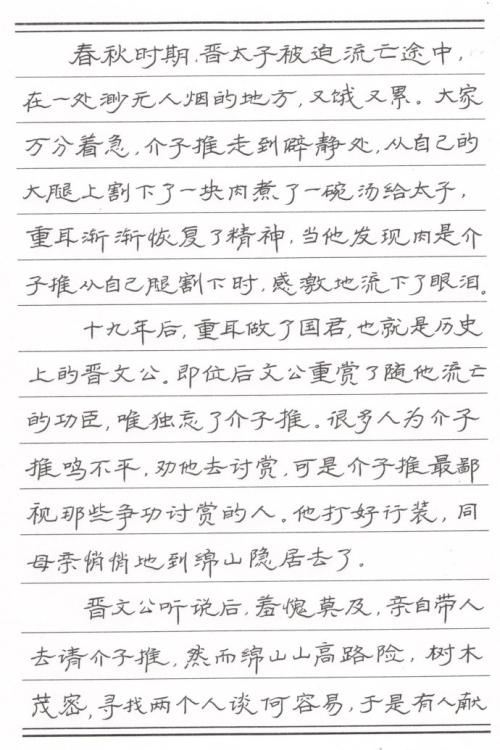 春秋时期,晋太子被迫流亡途中,
在一处渺无人烟的地方,又饿又累。大家
万分着急,介子推走到僻静处,从自己的
大腿上割下了一块肉煮了一碗汤给太子,
重耳渐渐恢复了精神,当他发现肉是介
子推从自己腿割下时,感激地流下了眼泪。
十九年后,重耳做了国君,也就是历史
上的晋文公。即位后文公重赏了随他流亡
的功臣,唯独忘了介子推。很多人为介子
推鸣不平,劝他去讨赏,可是介子推最鄙
视那些争功讨赏的人。他打好行装,同
母亲悄悄地到绵山隐居去了。
晋文公听说后,羞愧莫及,亲自带人
去请介子推,然而绵山山高路险,树木
茂密,寻找两个人谈何容易,于是有人献